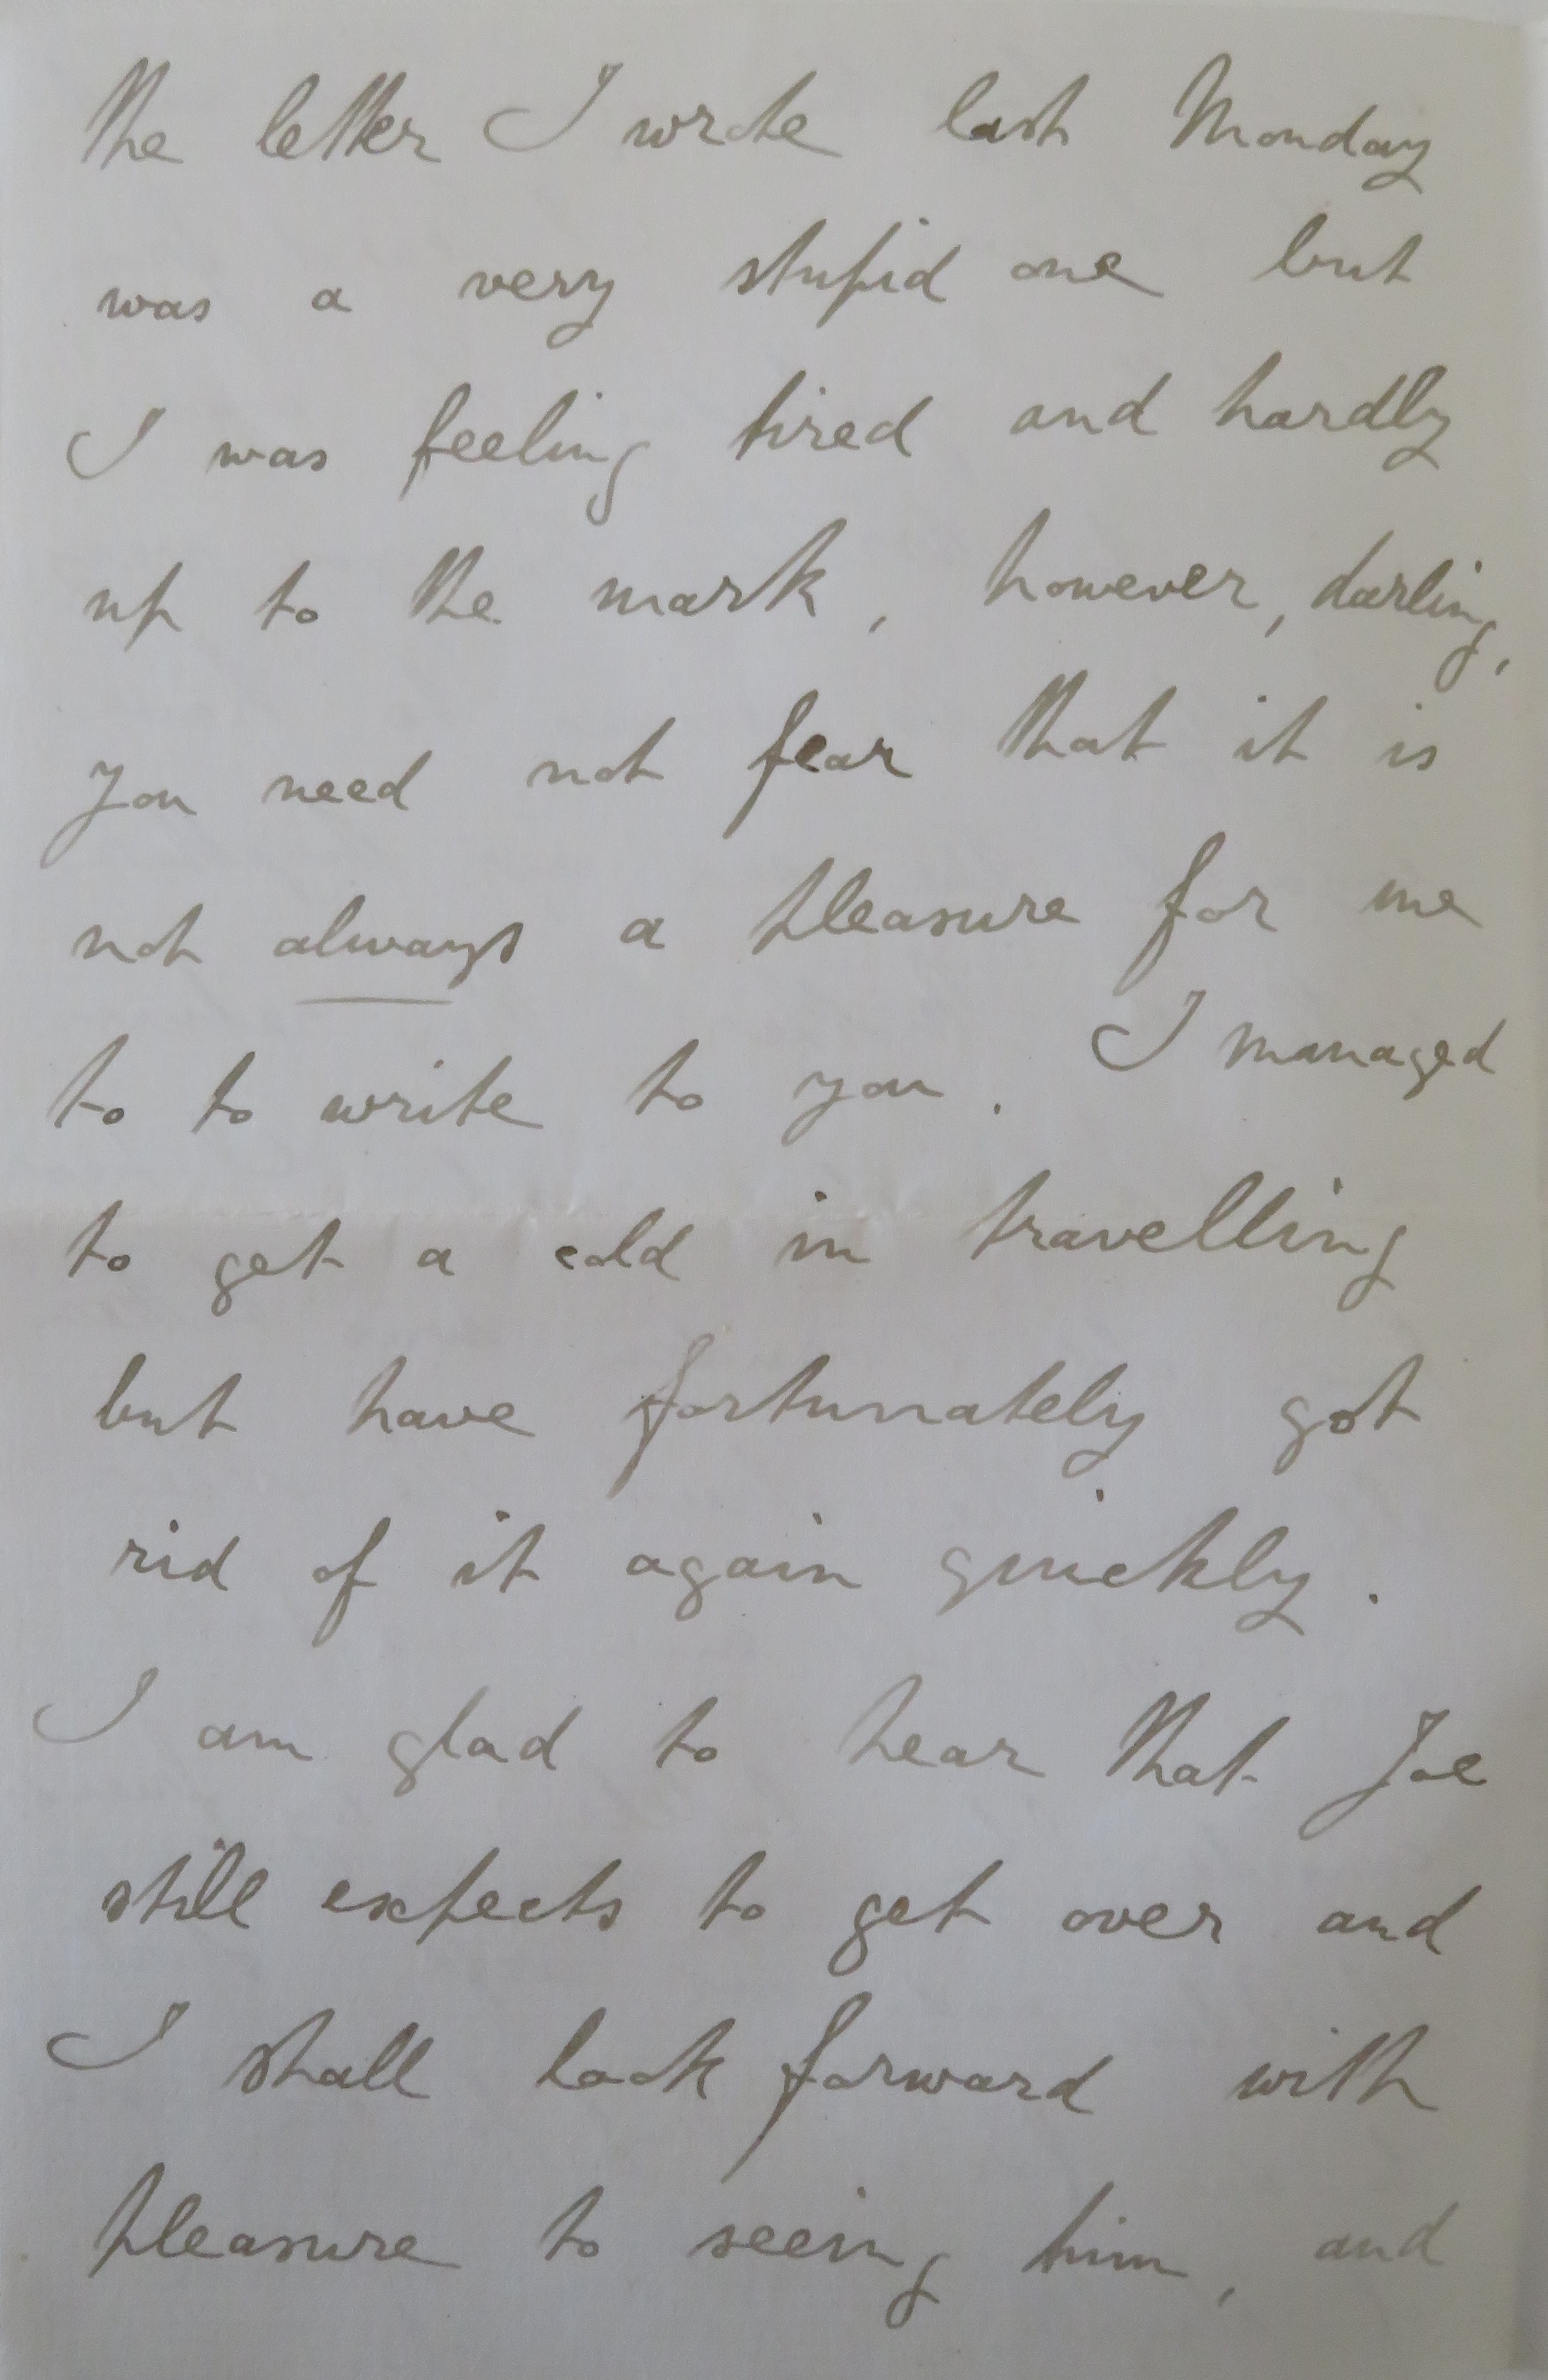 The letter I wrote last Monday
was a very stupid one but
I was feeling tired and hardly
up to the mark, however, darling,
you need not fear that it is
not always a pleasure for me
to to write to you. I managed
to get a cold in travelling
but have fortunately got
rid of it again quickly.
I am glad to hear that Joe
still expects to get over and
I shall look forward with
pleasure to seeing him, and